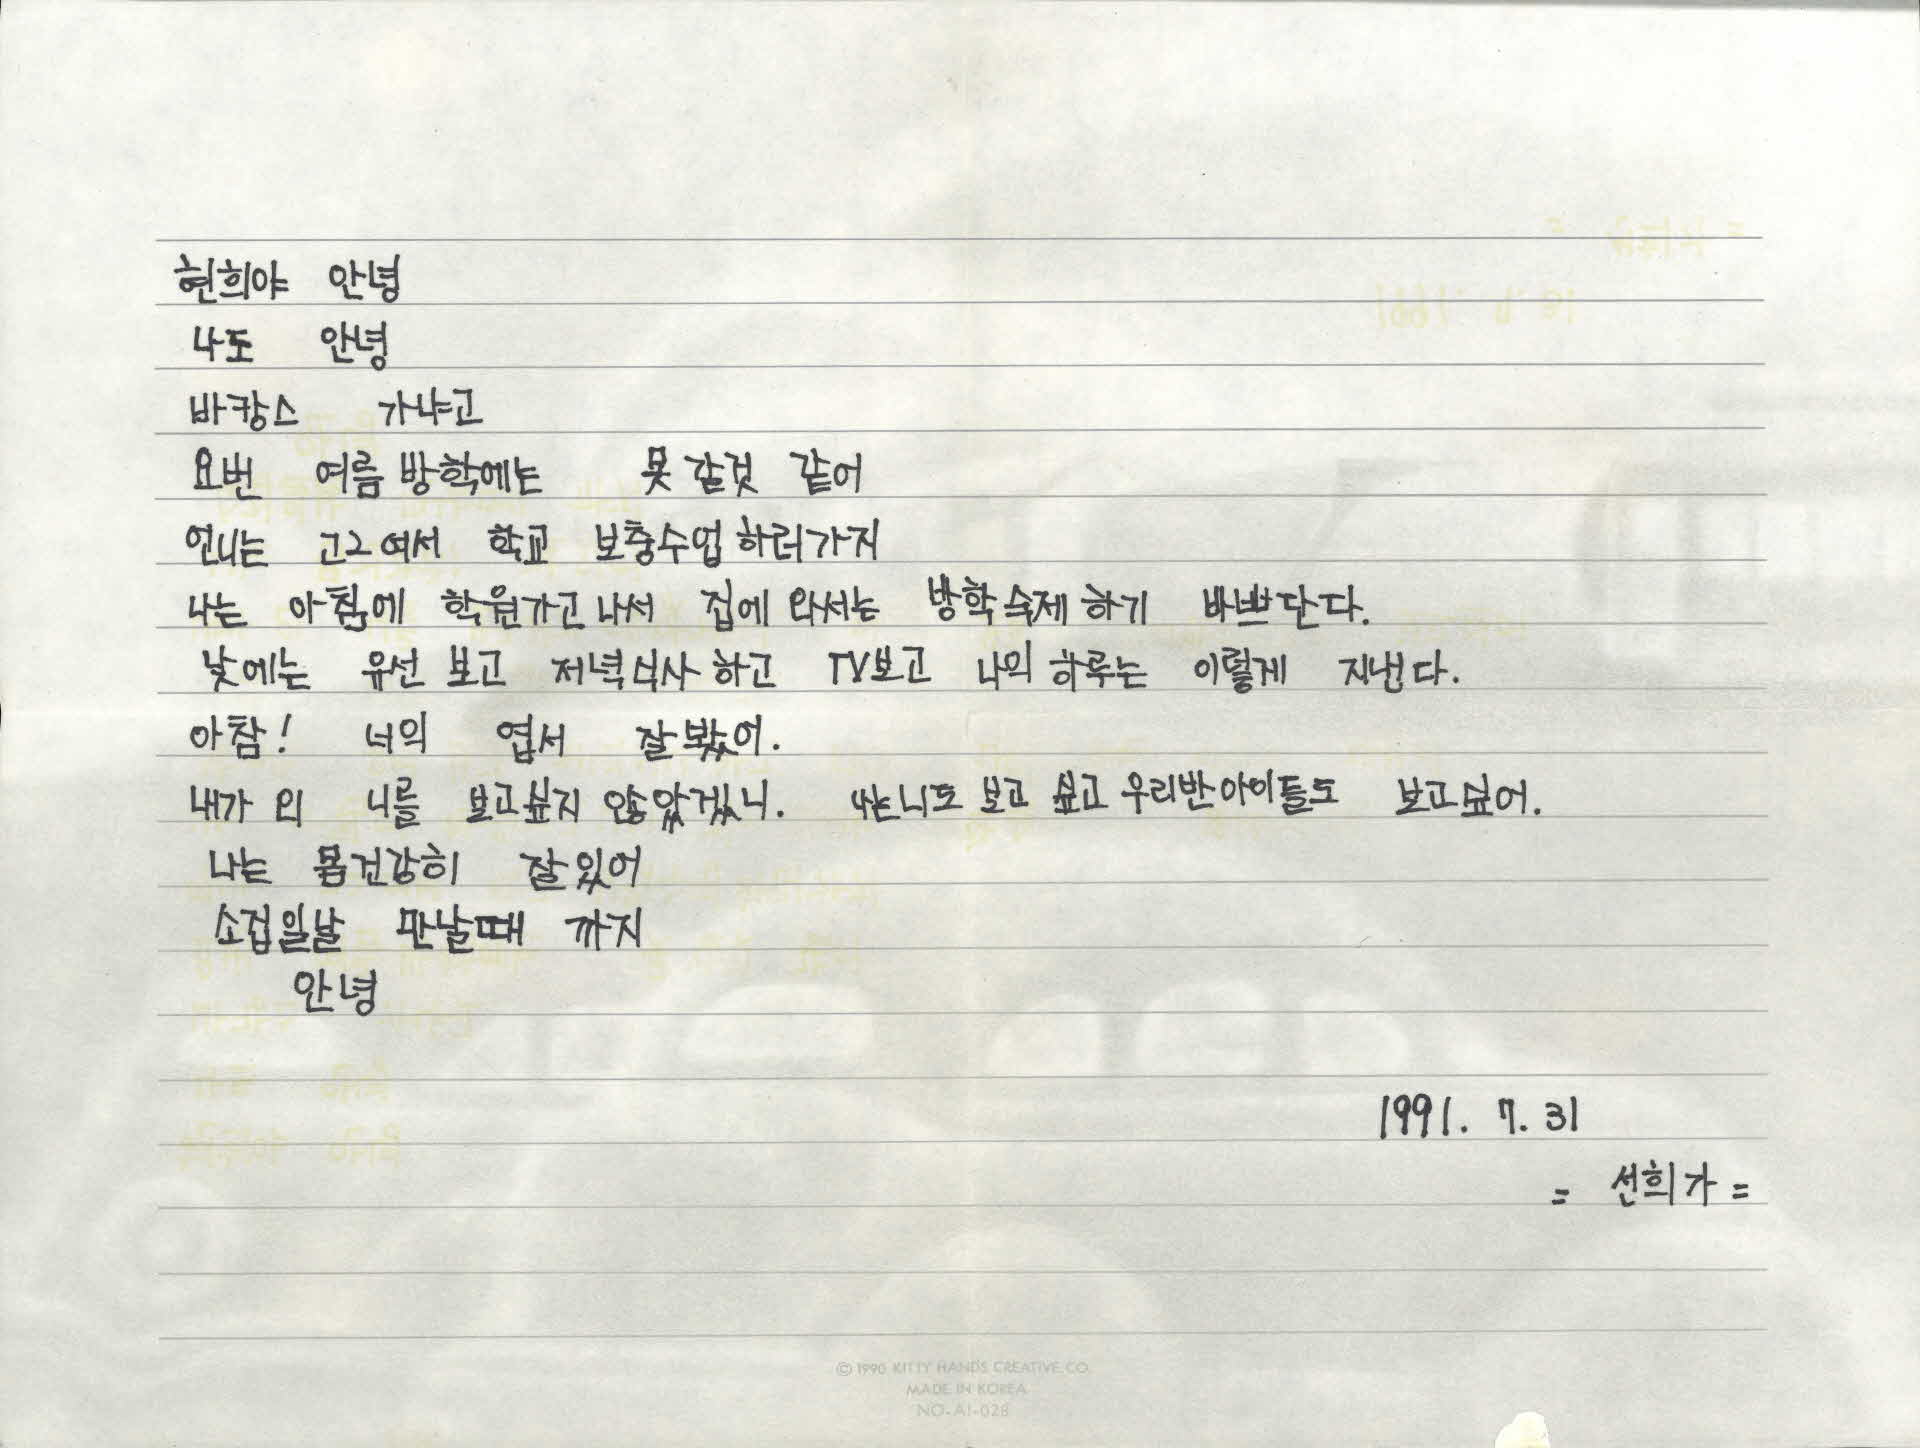 현희야 안녕
나도 안녕
바캉스 가냐고
요번 여름 방학에는 못 갈것 같어
언니는 고2여서 학교 보충수업 하러가지
나는 아침에 학원가고 나서 집에 와서는 방학숙제 하기 바쁘단다.
낮에는 유선 보고 저녁식사 하고 TV보고 나의 하루는 이렇게 지낸다.
아참! 너의 엽서 잘 봤어.
내가 왜 니를 보고싶지 않았겠니. 나는 니도 보고 싶고 우리반아이들도 보고싶어.
나는 몸건강히 잘있어
소집일날 만날때 까지
안녕
1991. 7. 31
= 선희가 =
© 1990 KITTY HANDS CREATIVE CO.
MADE IN KOREA
NO-AI-028